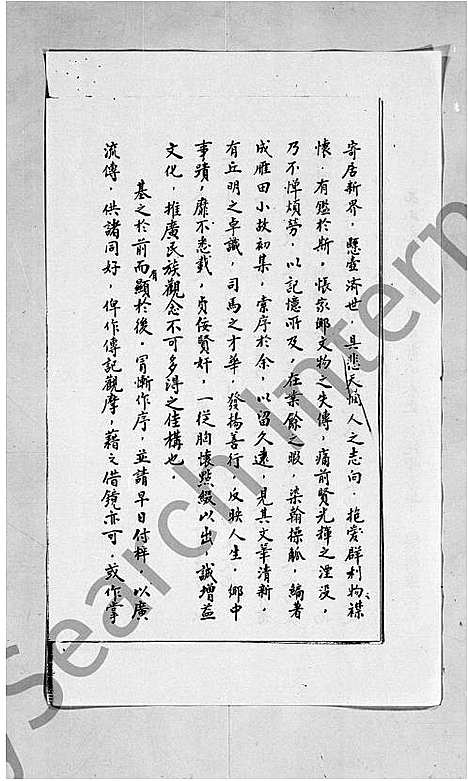 寄居新界，懸壺濟世，具悲天憫人之志向，抱愛群利物襟
懷．有鑑於斯，悵家鄉文物之失傳，痛前賢光輝之湮沒，
乃不憚煩勞，以記憶所及，在業餘之暇，染翰操觚，編著
成雁田小故初集，索序於余，以留久遠，見其文筆清新，
有丘明之卓識，司馬之才華，發揚善行，反映人生，鄉中
事蹟，靡不悉載，貞佞賢奸，一從胸懷點綴以出，誠增益
文化，推廣民族觀念不可多得之佳構也。
基之於前而有顯於後，冒慚作序，並請早日付梓，以廣
流傳，供諸同好，俾作傳記觀摩，藉之借鏡亦可，或作掌
Search Intern